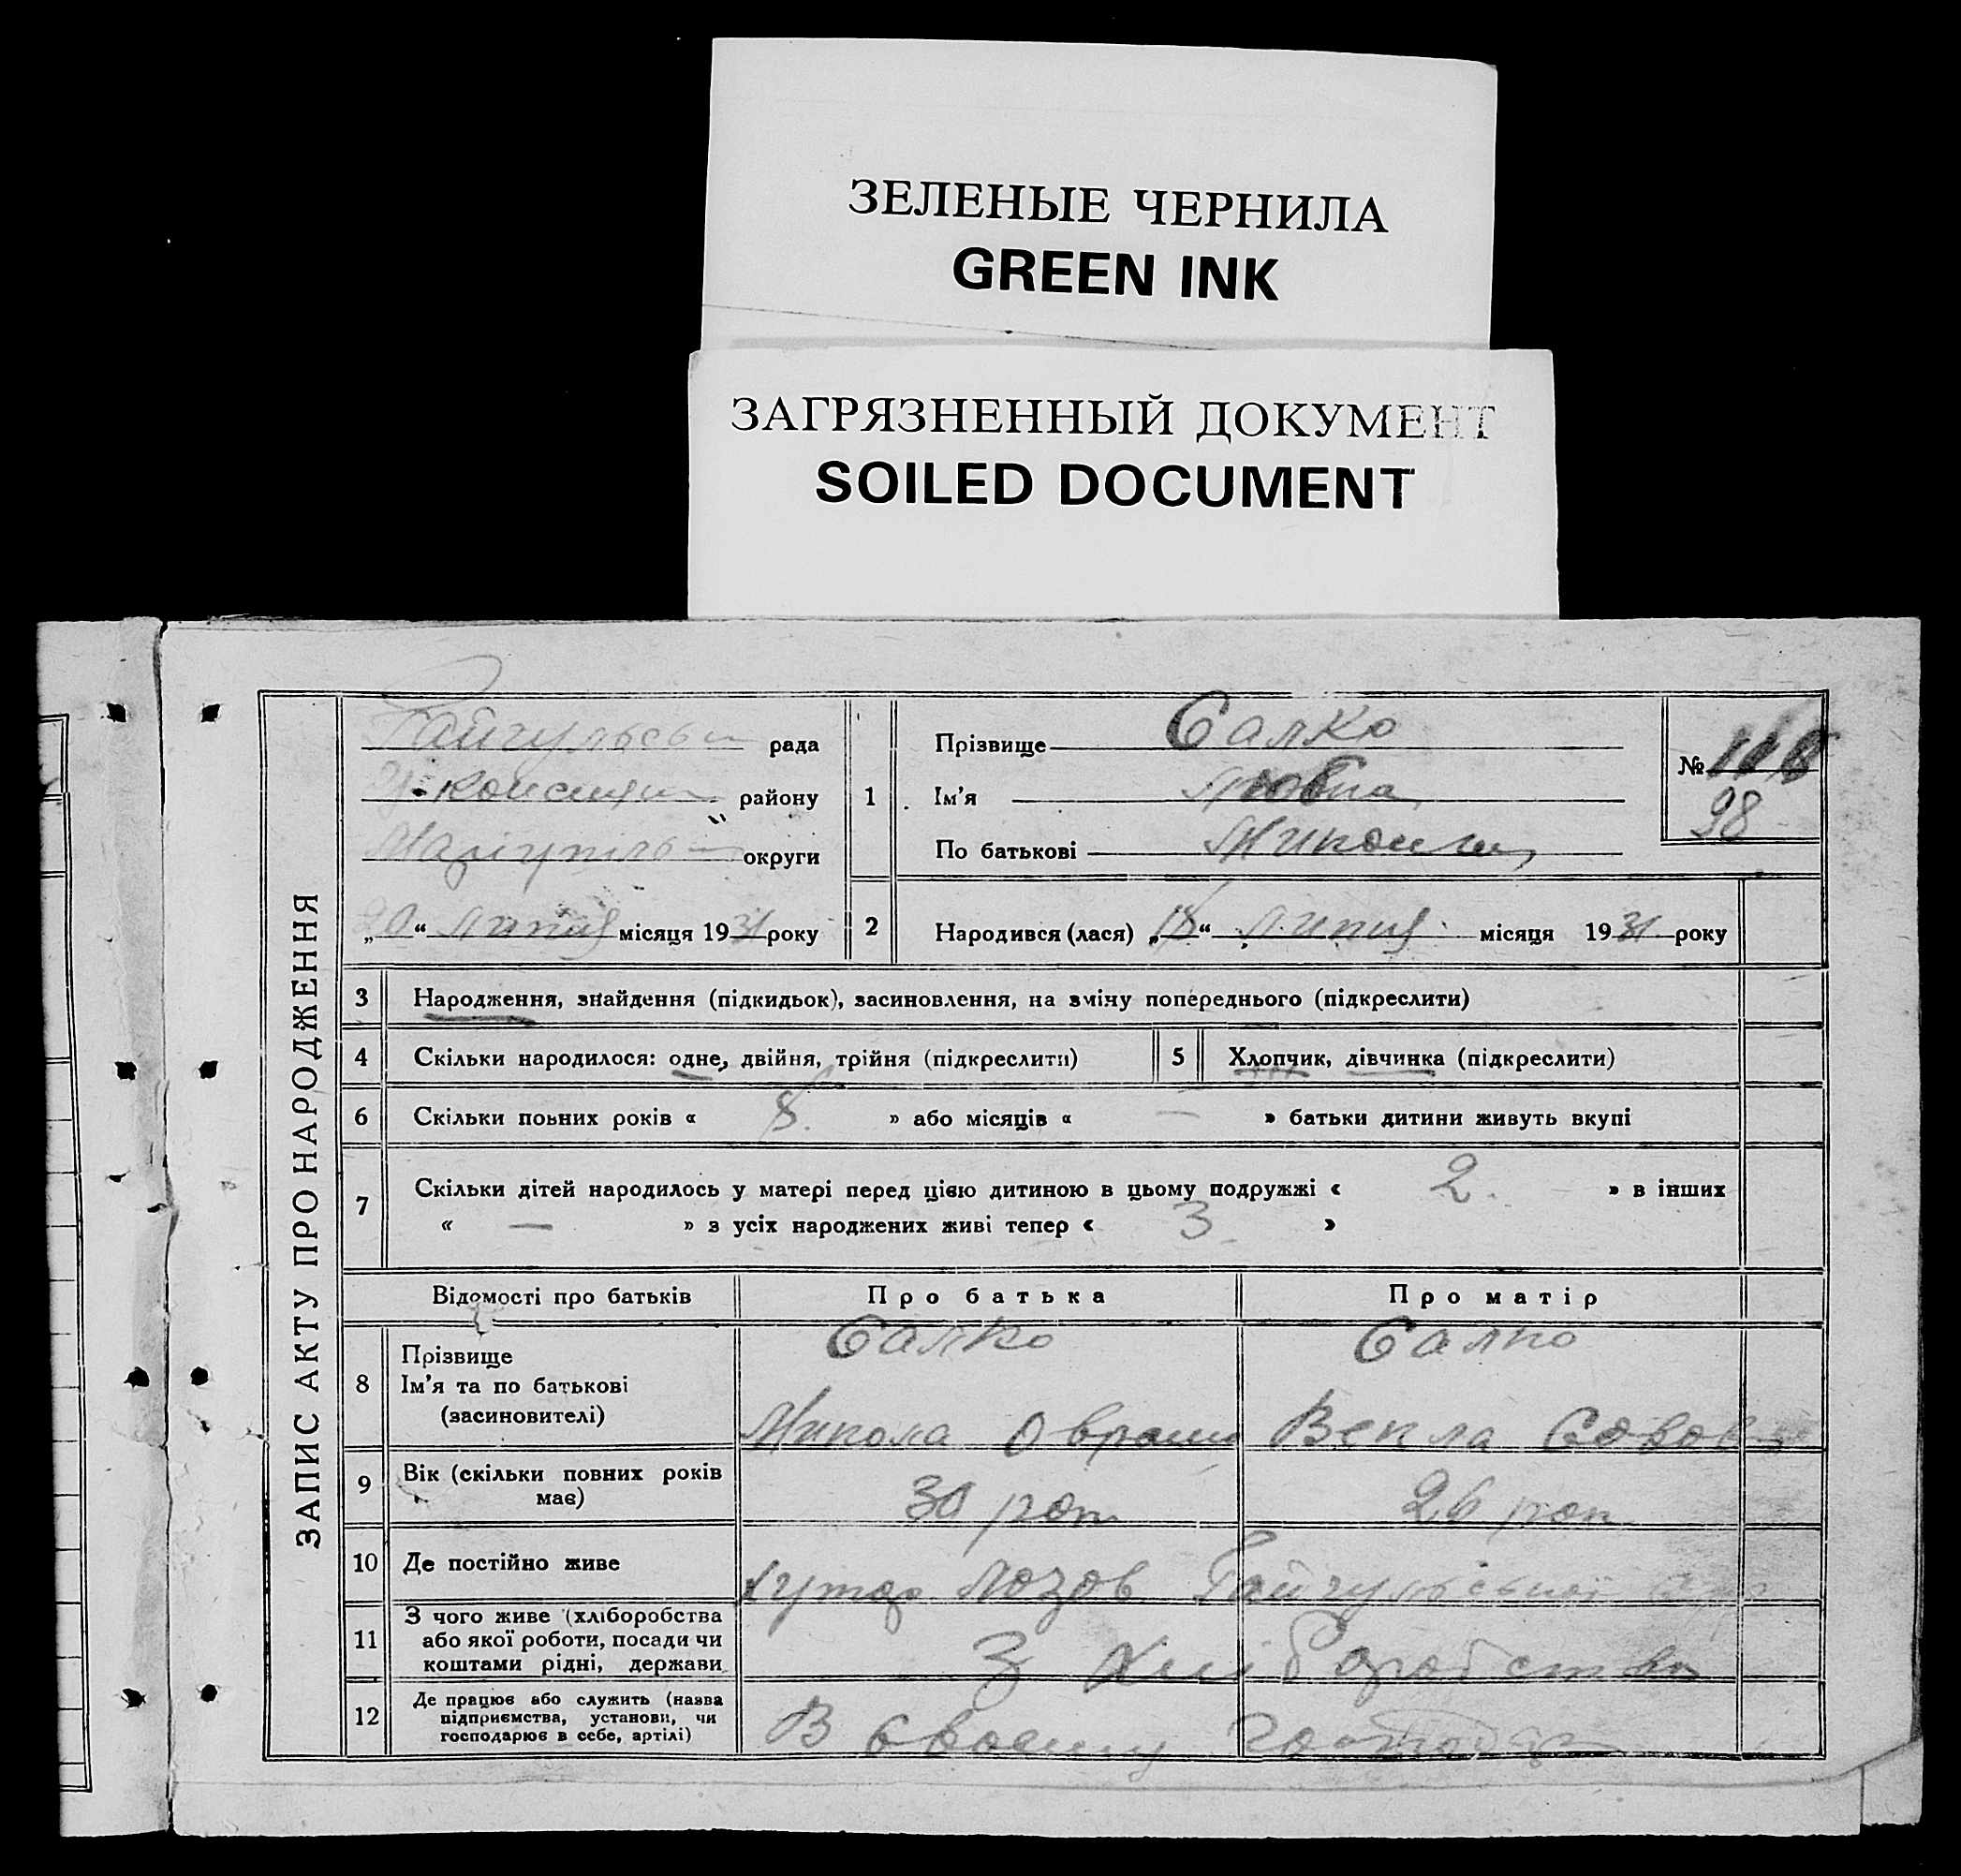 ЗЕЛЕНЫЕ ЧЕРНИЛА
GREEN INK
ЗАГРЯЗНЕННЫЙ ДОКУМЕНТ
SOILED DOCUMENT
ЗАПИС АКТУ ПРО НАРОДЖЕННЯ
Гайчульськ рада
району
Маріупіль округи
„20“ липня місяця 1931 року
1
Прізвище Салко
Ім'я Любка
По батькові Микол
№
98
2 Народився (лася) „18“ липня місяця 1931 року
3 Народження, знайдення (підкидьок), засиновлення, на зміну попереднього (підкреслити)
4 Скільки народилося: одне, двійня, трійня (підкреслити)
5 Хлопчик, дівчинка (підкреслити)
6 Скільки повних років « 8. » або місяців « — » батьки дитини живуть вкупі
7 Скільки дітей народилось у матері перед цією дитиною в цьому подружжі « 2. » в інших
« — » з усіх народжених живі тепер « 3 »
Відомості про батьків Про батька Про матір
8 Прізвище Салко Салко
Ім'я та по батькові
(засиновителі) Микола Оврам Векла Совов
9 Вік (скільки повних років
має) 30 рок 26 рок
10 Де постійно живе хутор Лозов Гайчульської
11 З чого живе (хліборобства
або якої роботи, посади чи
коштами рідні, держави З хліборобства
12 Де працює або служить (назва
підприємства, установи, чи
господарює в себе, артілі) В своему господар